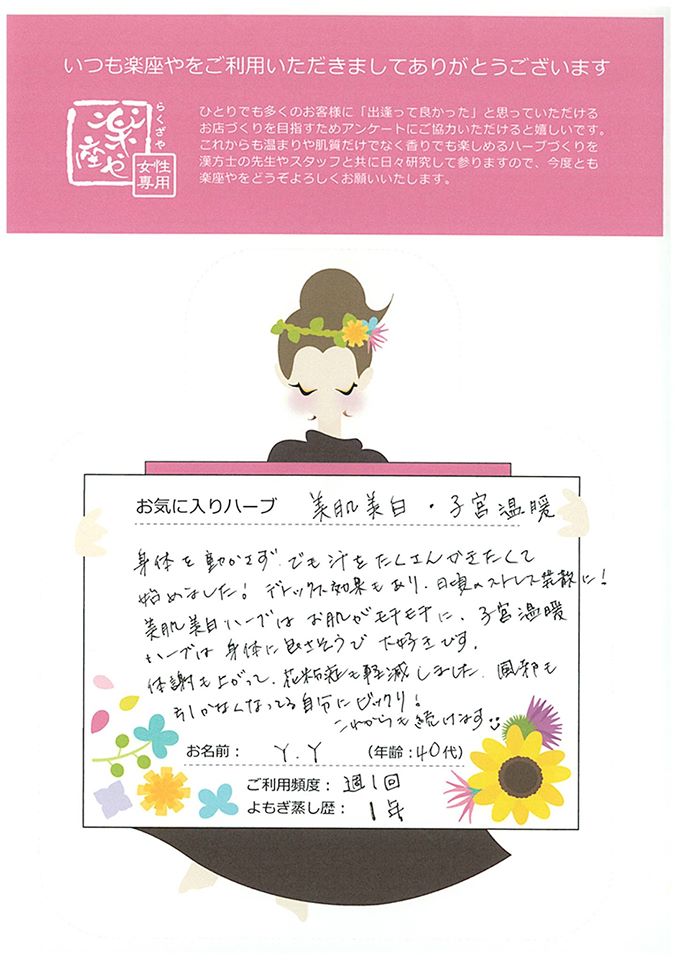 いつも楽座やをご利用いただきましてありがとうございます
らくざや
楽座や
女性専用
ひとりでも多くのお客様に「出逢って良かった」と思っていただける
お店づくりを目指すためアンケートにご協力いただけると嬉しいです。
これからも温まりや肌質だけでなく香りでも楽しめるハーブづくりを
漢方士の先生やスタッフと共に日々研究して参りますので、今度とも
楽座やをどうぞよろしくお願いいたします。
お気に入りハーブ 美肌美白・子宮温暖
身体を動かさず、でも汗をたくさんかきたくて
始めました！デトックス効果もあり、日頃のストレス発散に！
美肌美白ハーブはお肌がモチモチに、子宮温暖
ハーブは身体に良さそうで大好きです。
体謝も上がって、花粉症も軽減しました。風邪も
引かなくなってる自分にビックリ！
これからも続けます
お名前： Y.Y （年齢：40代）
ご利用頻度： 週1回
よもぎ蒸し歴： 1年